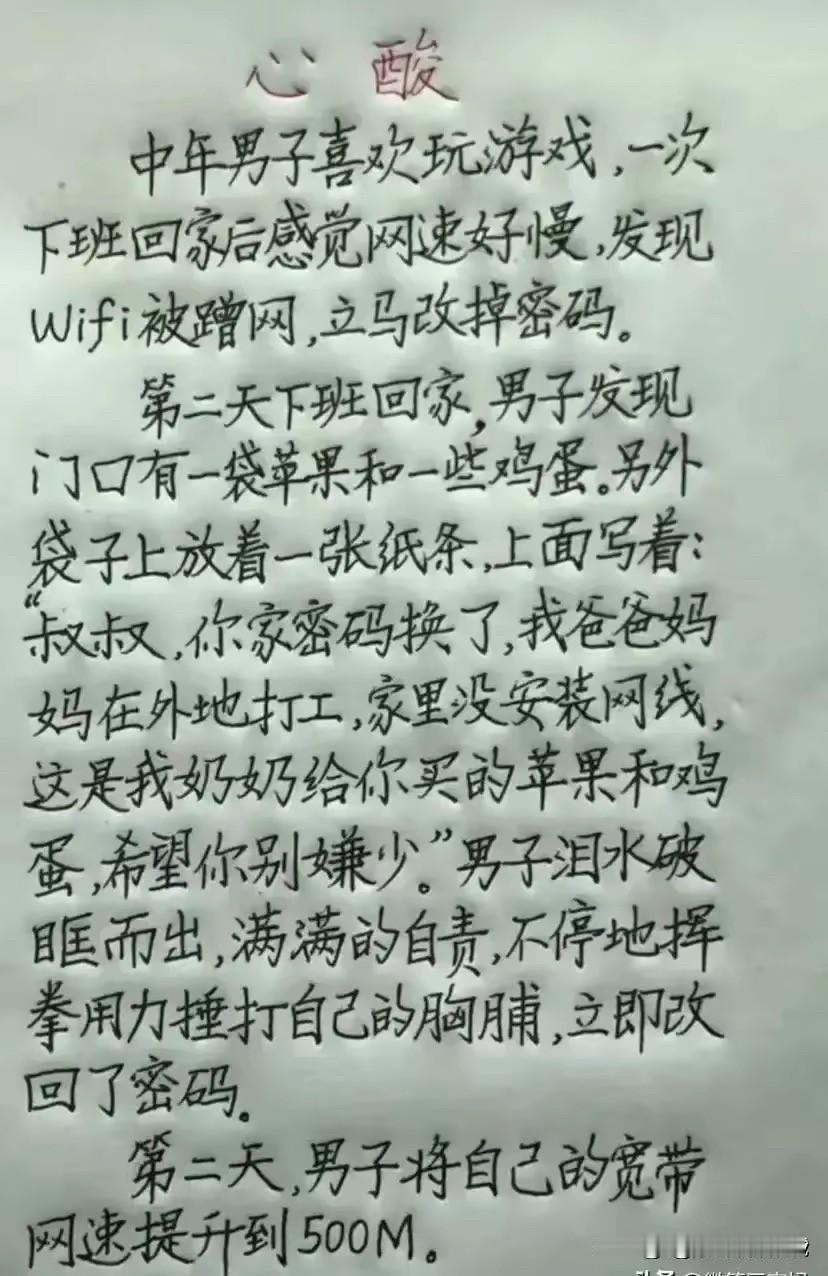 心酸
中年男子喜欢玩游戏,一次
下班回家后感觉网速好慢,发现
Wifi被蹭网,立马改掉密码。
第二天下班回家,男子发现
门口有一袋苹果和一些鸡蛋。另外
袋子上放着一张纸条,上面写着:
“叔叔,你家密码换了,我爸爸妈
妈在外地打工,家里没安装网线,
这是我奶奶给你买的苹果和鸡
蛋,希望你别嫌少。”男子泪水破
眶而出,满满的自责,不停地挥
拳用力捶打自己的胸脯,立即改
回了密码。
第二天,男子将自己的宽带
网速提升到500M。